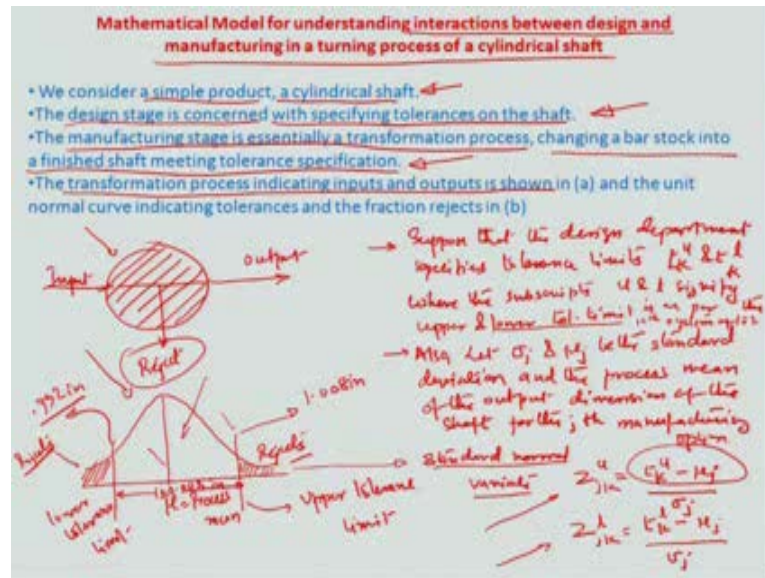 Mathematical Model for understanding interactions between design and
manufacturing in a turning process of a cylindrical shaft
•We consider a simple product, a cylindrical shaft.
•The design stage is concerned with specifying tolerances on the shaft.
•The manufacturing stage is essentially a transformation process, changing a bar stock into
a finished shaft meeting tolerance specification.
•The transformation process indicating inputs and outputs is shown in (a) and the unit
normal curve indicating tolerances and the fraction rejects in (b)
Input
output
Reject
.992in
1.008in
Rejects
Rejects
μ = Process
mean
lower
tolerance
limit
Upper tolerance
limit
→ Suppose that the design department
specifies tolerance limits t_k^u & t_k^l
where the subscripts u & l signify
upper & lower tol. limit
→ Also let σj & μj be the standard
deviation and the process mean
of the output dimension of the
shaft for the j th manufacturing
option
Standard normal
variate
Z_jk^u = t_k^u - μj
σj
Z_jk^l = t_k^l - μj
σj